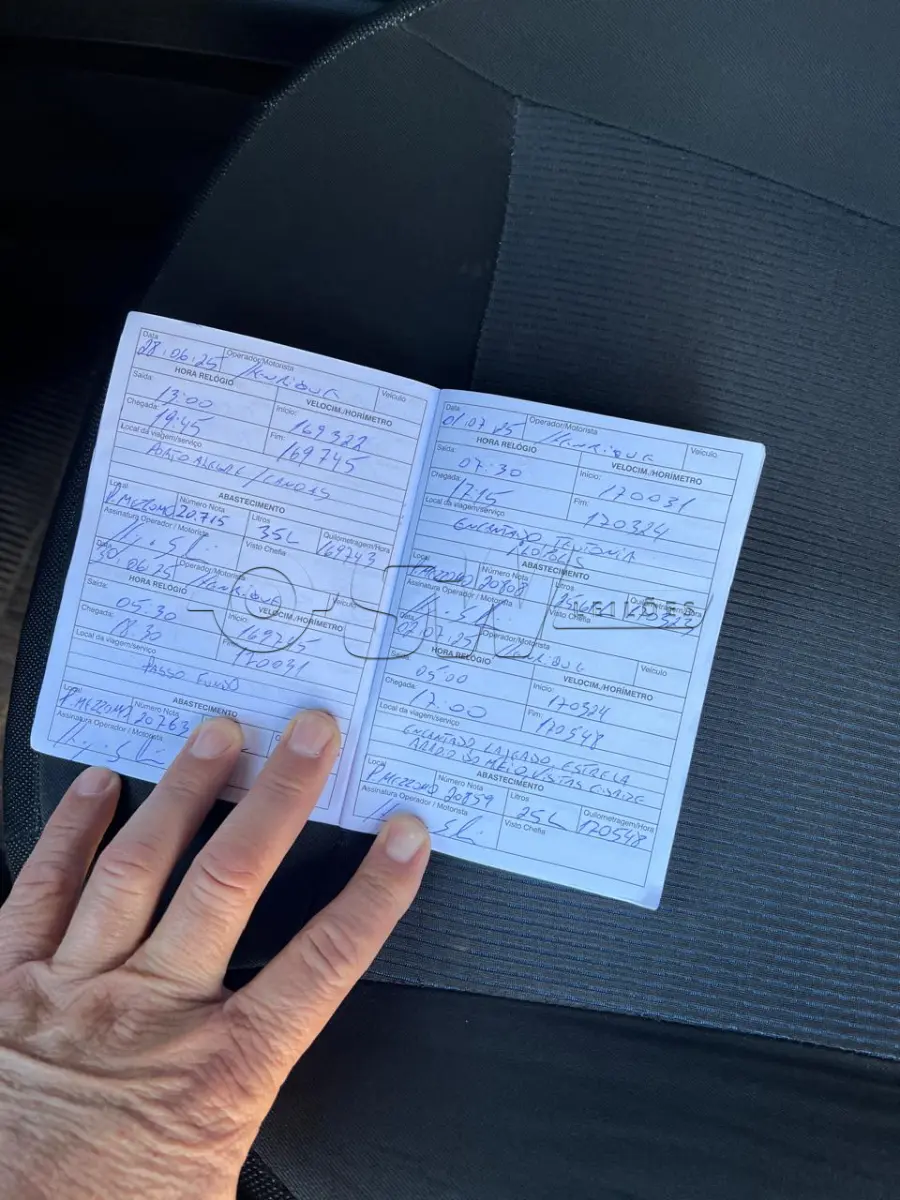 Data
Operador/Motorista
Veículo
28.06.25
Henrique
HORA RELÓGIO
VELOCIM./HORÍMETRO
Saída:
13:00
Início:
169322
Chegada:
19:45
Fim:
169745
Local da viagem/serviço
Porto Alegre / Canoas
ABASTECIMENTO
Local
Número Nota
Litros
Quilometragem/Hora
20.715
35L
169743
Assinatura Operador / Motorista
Visto Chefia
Data
Operador/Motorista
Veículo
30.06.25
Henrique
HORA RELÓGIO
VELOCIM./HORÍMETRO
Saída:
05:30
Início:
169745
Chegada:
18:30
Fim:
170031
Local da viagem/serviço
Passo Fundo
ABASTECIMENTO
Local
Número Nota
20763
Assinatura Operador / Motorista
Data
Operador/Motorista
Veículo
01.07.25
Henrique
HORA RELÓGIO
VELOCIM./HORÍMETRO
Saída:
07:30
Início:
170031
Chegada:
17:15
Fim:
170324
Local da viagem/serviço
Encantado Teutonia
ABASTECIMENTO
Local
Número Nota
Litros
20808
Assinatura Operador / Motorista
Visto Chefia
LEILÕES
Operador/Motorista
Veículo
02.07.25
Henrique
HORA RELÓGIO
VELOCIM./HORÍMETRO
05:00
Início:
170324
Chegada:
17:00
Fim:
170548
Local da viagem/serviço:
Encantado Lajeado, Estrela
Arroio do Meio, Visitas
ABASTECIMENTO
Local
Número Nota
Litros
Quilometragem/Hora
20859
25L
170548
Assinatura Operador / Motorista
Visto Chefia